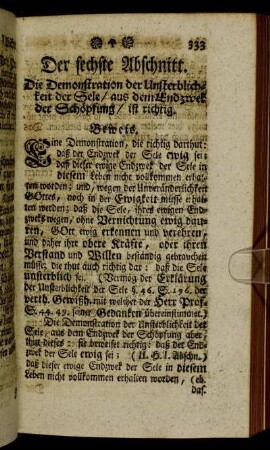 333
Der sechste Abschnitt.
Die Demonstration der Unsterblich-
keit der Sele/ aus dem Endzwek
der Schöpfung/ ist richtig.
Beweis.
Eine Demonstration, die richtig darthut:
daß der Endzwek der Sele ewig sei:
daß dieser ewige Endzwek der Sele in
diesem Leben nicht vollkommen erhal-
ten worden; und, wegen der Unveränderlichkeit
GOttes, noch in der Ewigkeit müsse erhal-
ten werden; daß die Sele, ihres ewigen End-
zweks wegen, ohne Vernichtung ewig dau-
ren, GOtt ewig erkennen und verehren,
und daher ihre obere Kräfte, oder ihren
Verstand und Willen beständig gebrauchen
müsse; die thut auch richtig dar: daß die Sele
unsterblich sei; (Vermög der Erklärung
der Unsterblichkeit der Sele §. 46. S. 196. der
verth. Gewißh. mit welcher der Herr Prof.
S. 44. 49. seiner Gedanken übereinstimmet.)
Die Demonstration der Unsterblichkeit der
Sele, aus dem Endzwek der Schöpfung aber,
thut dieses: sie beweiset richtig: daß der End-
zwek der Sele ewig sei; (II. H. I. Abschn.)
daß dieser ewige Endzwek der Sele in diesem
Leben nicht vollkommen erhalten worden, (eb.
das.